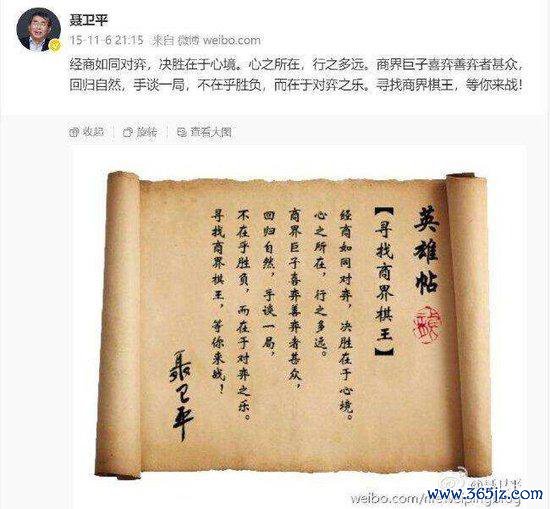 聂卫平
15-11-6 21:15 来自 微博 weibo.com
经商如同对弈,决胜在于心境。心之所在,行之多远。商界巨子喜弈善弈者甚众,
回归自然,手谈一局,不在乎胜负,而在于对弈之乐。寻找商界棋王,等你来战!
收起 旋转 查看大图
英雄帖
【寻找商界棋王】
经商如同对弈,决胜在于心境。
心之所在,行之多远。
商界巨子喜弈善弈者甚众,
回归自然,手谈一局,
不在乎胜负,而在于对弈之乐。
寻找商界棋王,等你来战!
聂卫平
@聂卫平
www.365jz.com